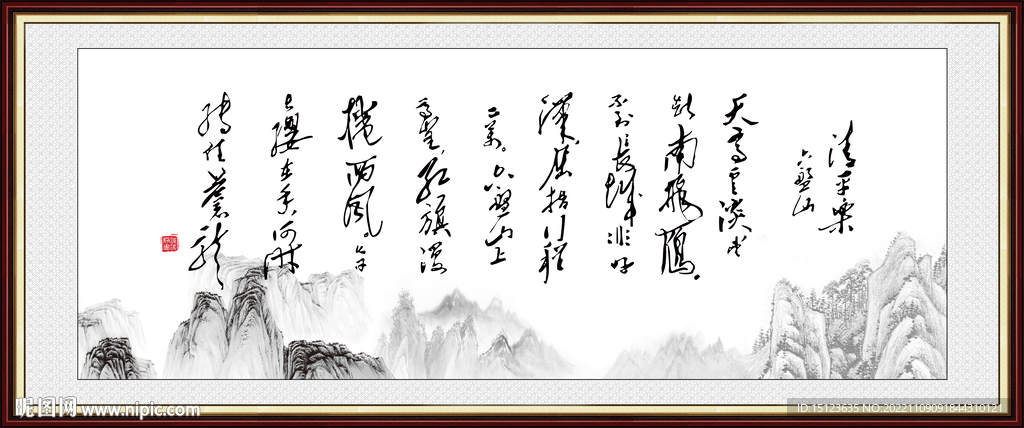 清平樂
六盤山
天高云淡,望
斷南飛雁。
不到長城非好
漢,屈指行程
二萬。六盤山上
高峰,紅旗漫
捲西風。今日
長纓在手,何時
縛住蒼龍
昵图网 www.nipic.com
ID:15123635 NO:20221109091844310121